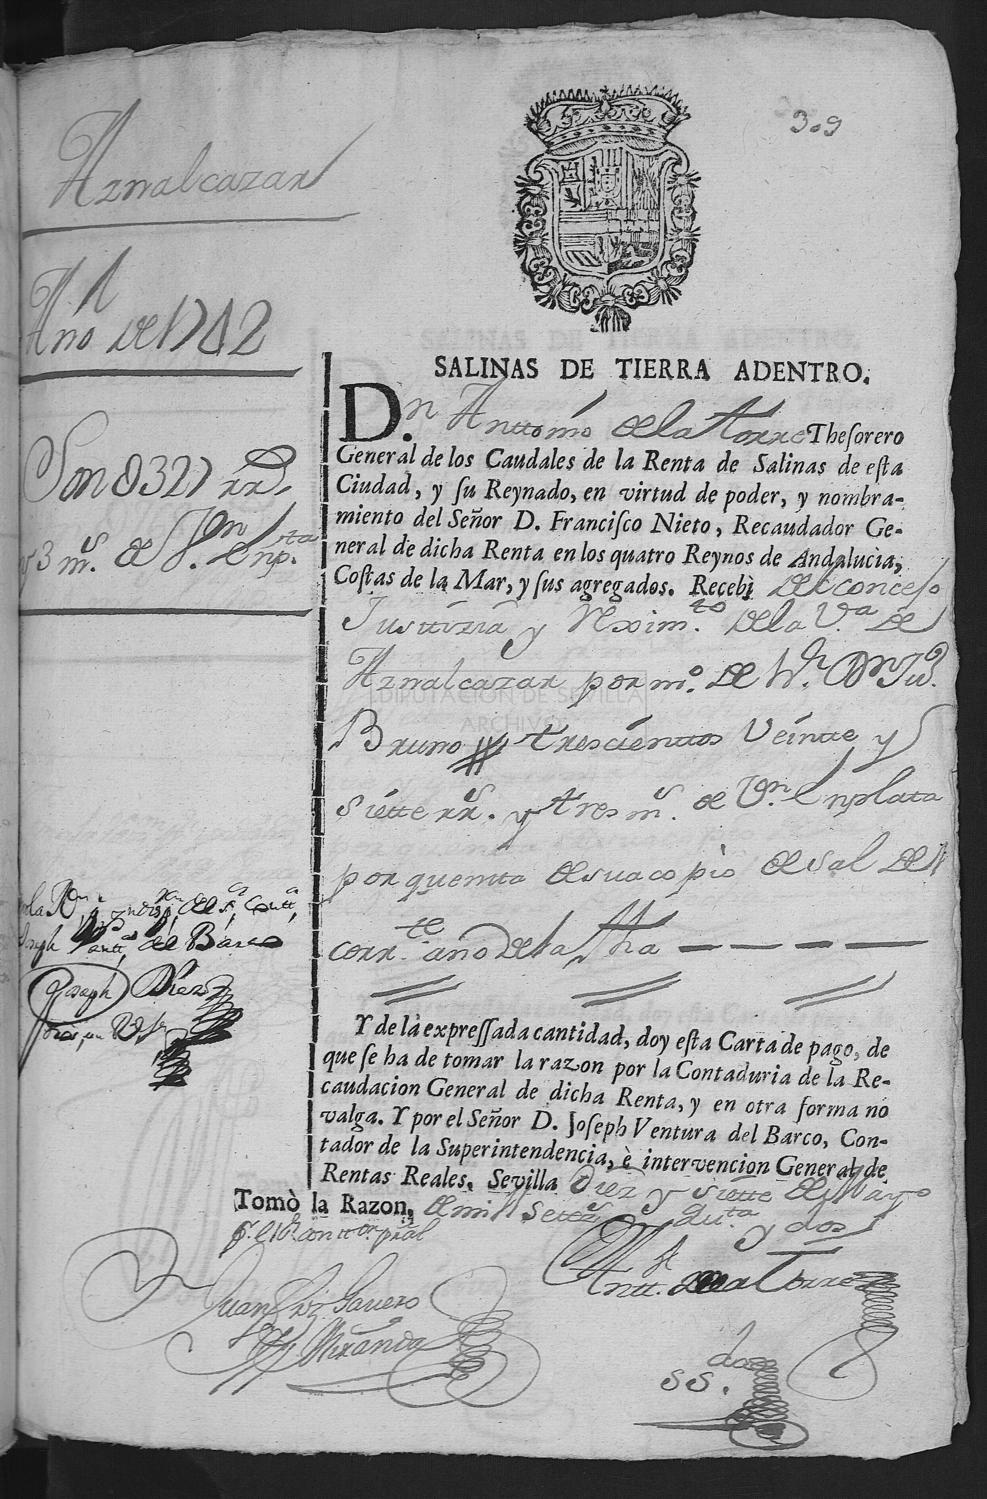 309
Aznalcazar
Año de 1742
Son 8327 rrs.
y 3 ms. de Vn. enpta.
SALINAS DE TIERRA ADENTRO.
Dn. Anttonio de la Torre Thesorero
General de los Caudales de la Renta de Salinas de esta
Ciudad, y su Reynado, en virtud de poder, y nombra-
miento del Señor D. Francisco Nieto, Recaudador Ge-
neral de dicha Renta en los quatro Reynos de Andalucìa,
Costas de la Mar, y sus agregados. Recebì del concejo
Justizia y Rexim.to de la V.a de
Aznalcazar por mº. de Dn Juº.
Bruno trescienttos Veintte y
siette rrs. y tres ms. de Vn. enplata
por quenta de su acopio de sal de
corr.te año de la fha
Y de la expressada cantidad, doy esta Carta de pago, de
que se ha de tomar la razon por la Contaduria de la Re-
caudacion General de dicha Renta, y en otra forma no
valga. Y por el Señor D. Joseph Ventura del Barco, Con-
tador de la Superintendencia, è intervencion General de
Rentas Reales. Sevilla Diez y siette de Mayo
de mill setezs. quta. y dos
Tomò la Razon,
Antt. de la Torre
Juan Gavero
Miranda
ss.
del Barco
Joseph Diez
DIPUTACIÓN DE SEVILLA
ARCHIVO